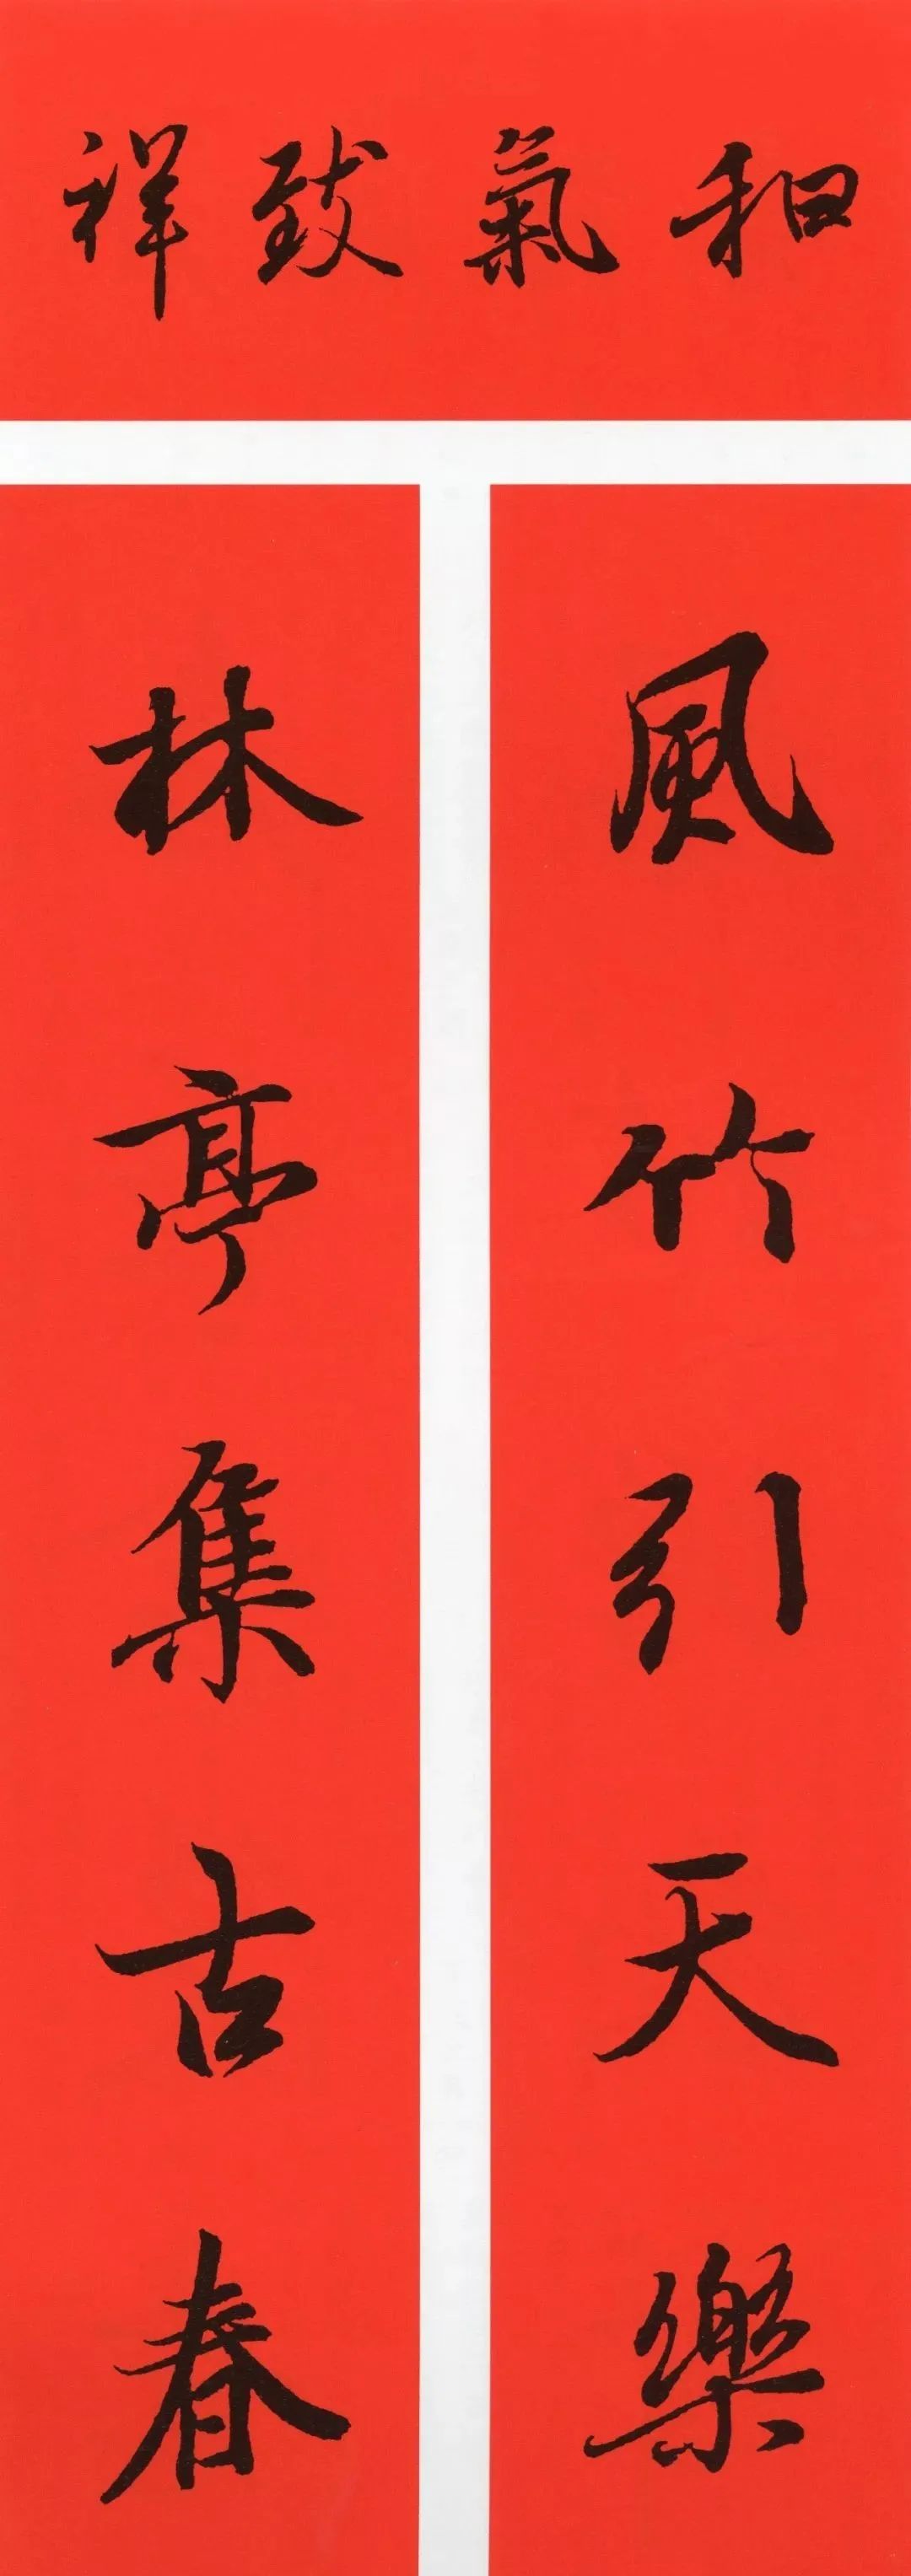 和氣致祥
風竹引天樂
林亭集古春